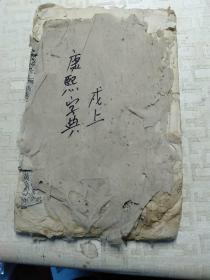 戌上
康熙字典